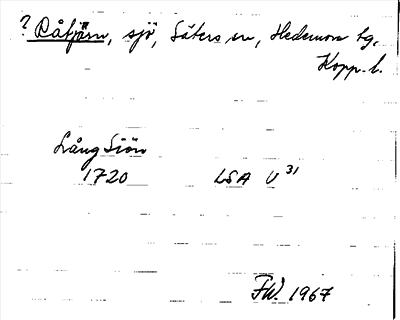 ? Råtjärn, sjö, Säters sn, Hedemora tg,
Kopp. l.
Lång Siön
1720 LSA U 31
FW. 1967